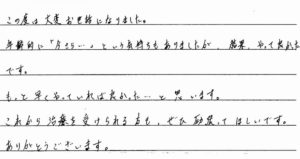 この度は大変お世話になりました。
年齢的に「今さら…」という気持ちもありましたが、結果、やって良かった
です。
もっと早くやっていれば良かった…と思います。
これから治療を受けられる方も、ぜひ頑張ってほしいです。
ありがとうございます。